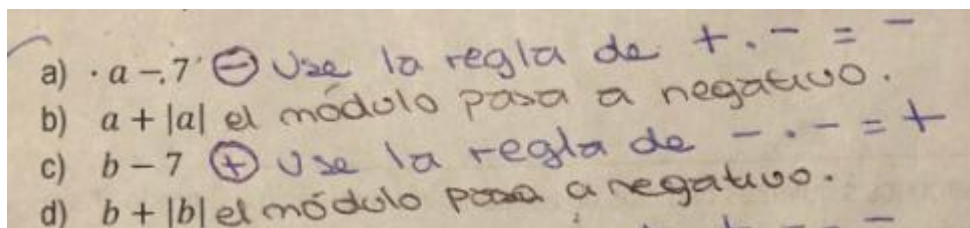 a) · a - . 7 ⊖ Use la regla de + . - = -
b) a + |a| el módulo pasa a negativo.
c) b - 7 ⊕ Use la regla de - . - = +
d) b + |b| el módulo pasa a negativo.